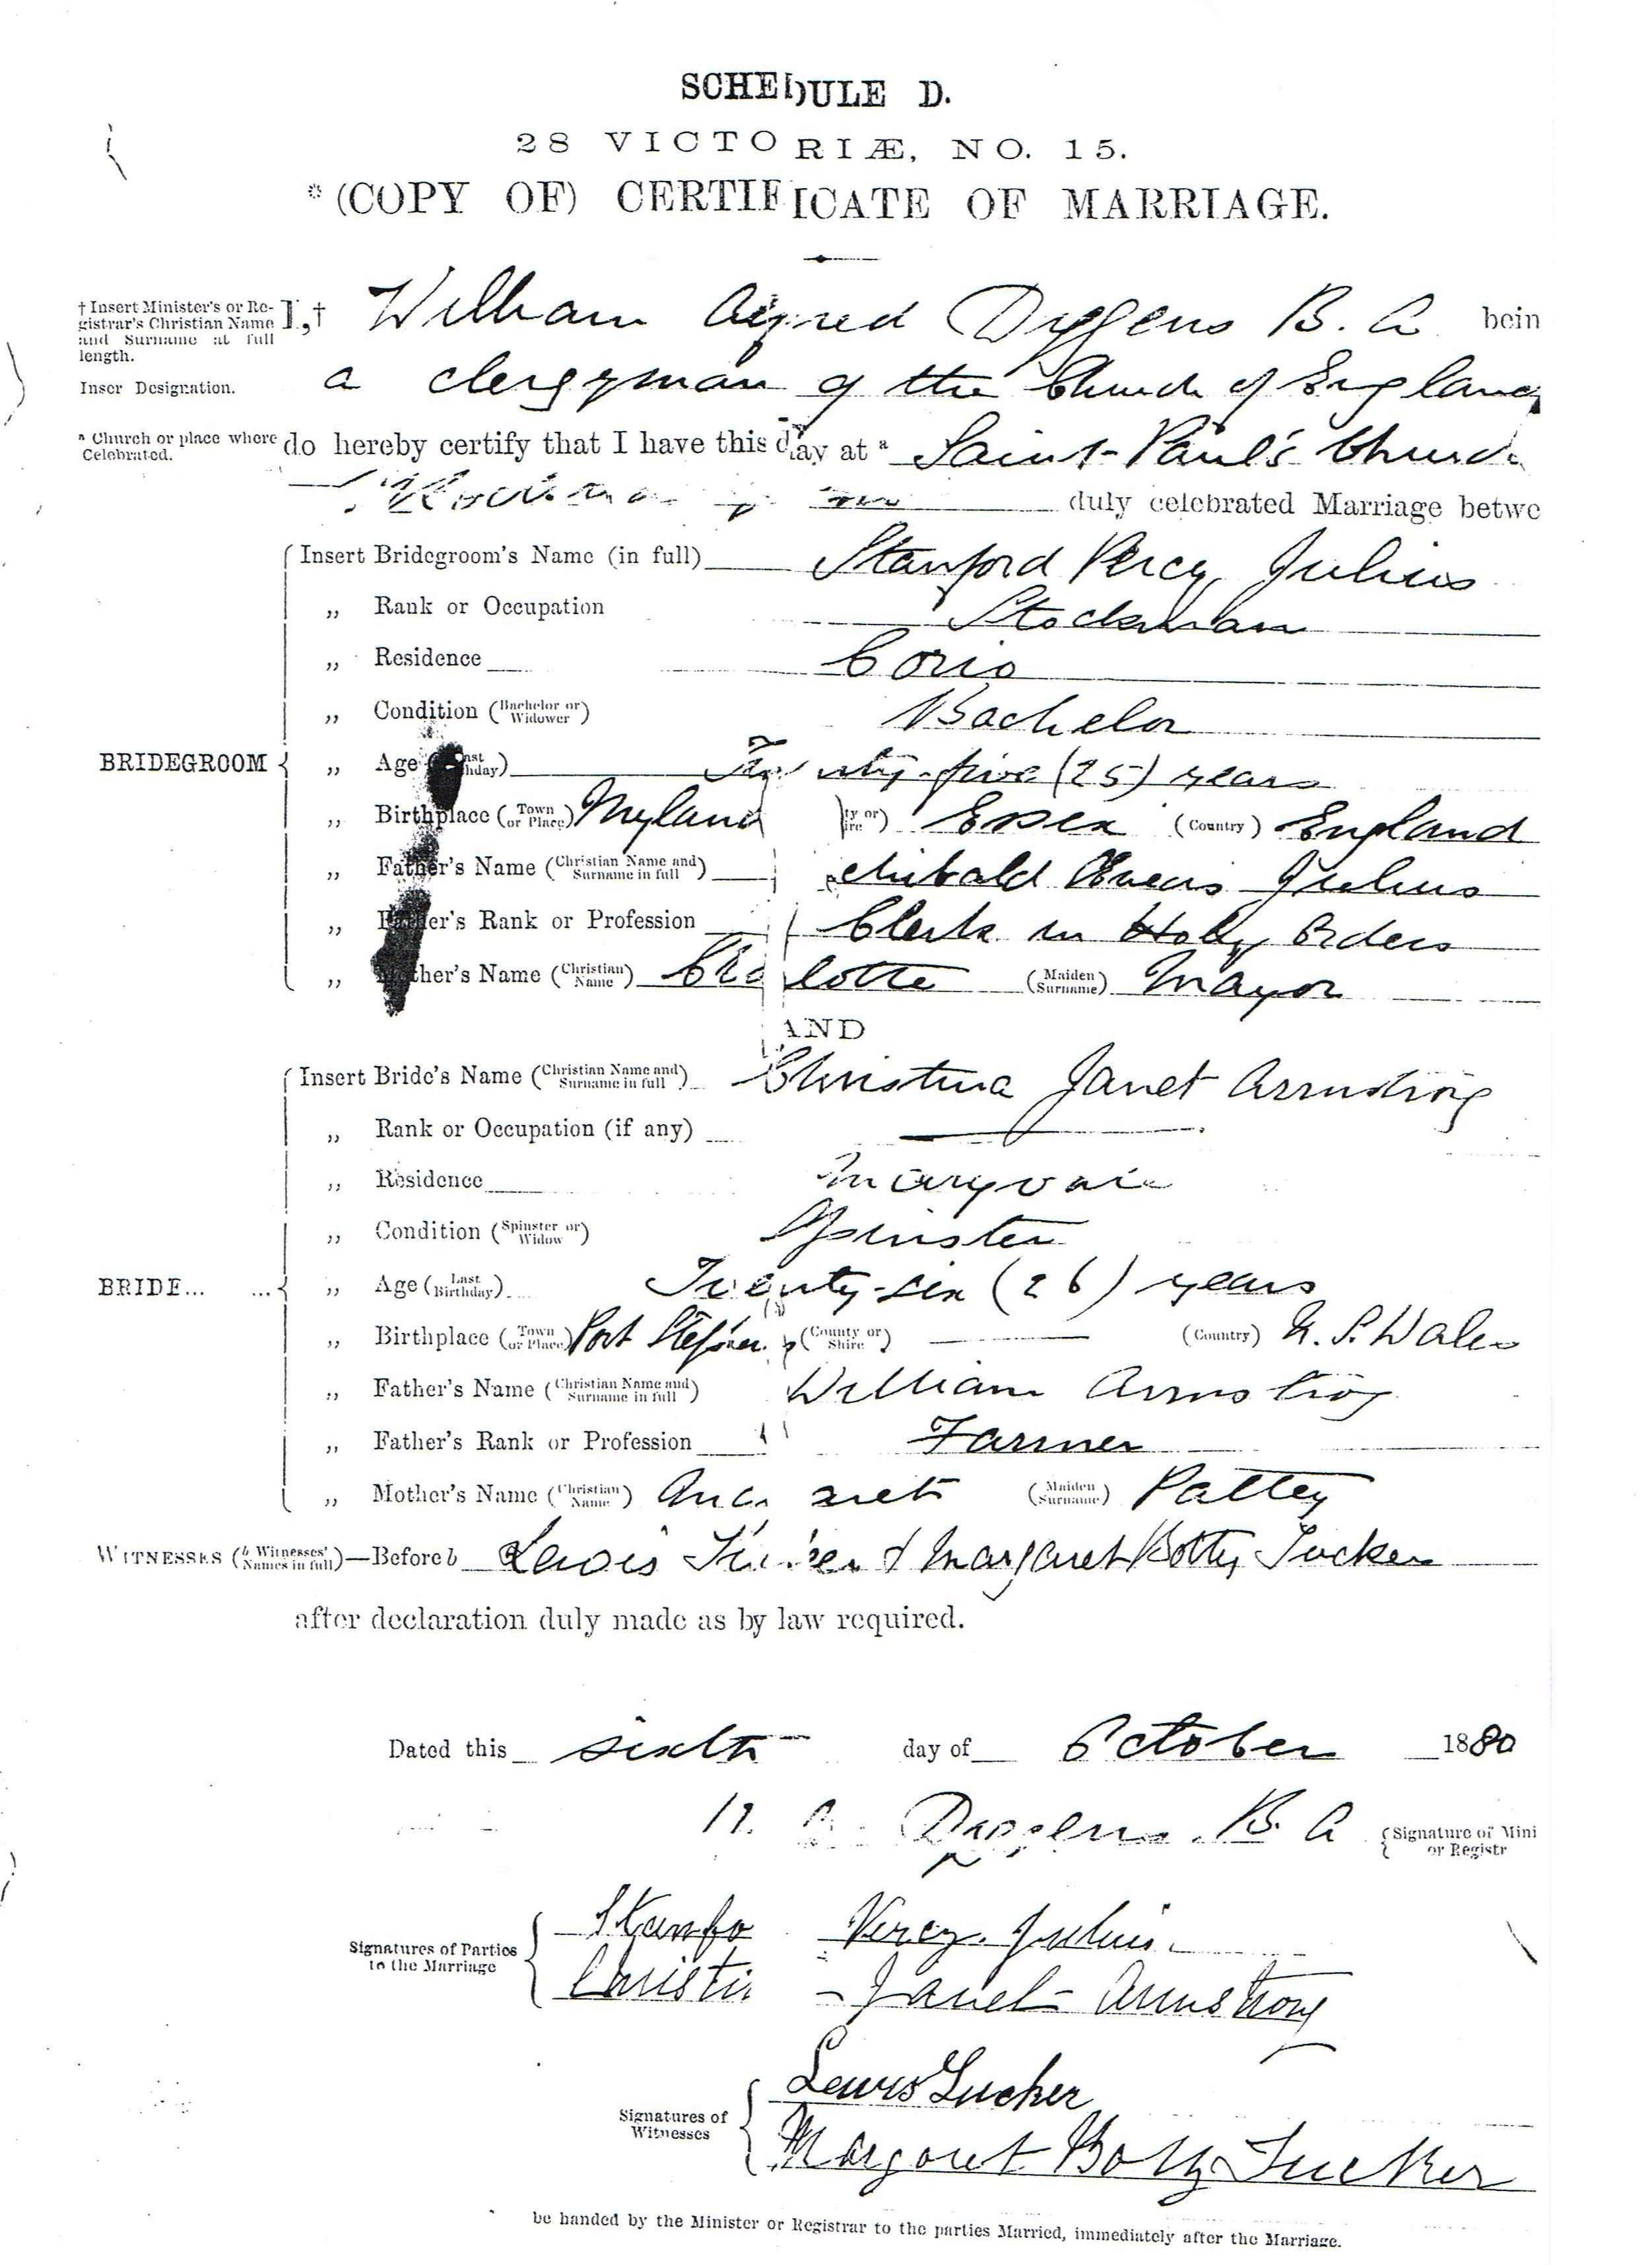 SCHEDULE D.
28 VICTORIÆ, NO. 15.
*(COPY OF) CERTIFICATE OF MARRIAGE.
† Insert Minister's or Registrar's Christian Name and Surname at full length.
I,† William Alfred Diggens B. A bein
Inser Designation.
a clergyman of the Church of England
a Church or place where Celebrated.
do hereby certify that I have this day at a Saint Paul's Church
duly celebrated Marriage betwe
BRIDEGROOM
Insert Bridegroom's Name (in full) Stanford Percy Julius
„ Rank or Occupation Stockman
„ Residence Corio
„ Condition (Bachelor or Widower) Bachelor
„ Age ( ast hday) Twenty-five (25) years
„ Birthplace (Town or Place) Myland ty or ire) Essex (Country) England
„ Father's Name (Christian Name and Surname in full) chibald Aeneas Julius
„ Father's Rank or Profession Clerk in Holy Orders
„ Mother's Name (Christian Name) Cha lotte (Maiden Surname) Mayor
AND
BRIDE... ...
Insert Bride's Name (Christian Name and Surname in full) Christina Janet Armstrong
„ Rank or Occupation (if any)
„ Residence Maryvale
„ Condition (Spinster or Widow) Spinster
„ Age (Last Birthday) Twenty-six (26) years
„ Birthplace (Town or Place) Port Stephens (County or Shire) (Country) N. S. Wales
„ Father's Name (Christian Name and Surname in full) William Armstrong
„ Father's Rank or Profession Farmer
„ Mother's Name (Christian Name) (Maiden Surname) Pattey
WITNESSES (b Witnesses' Names in full)—Before b Lewis Tucker & Margaret Botty Tucker
after declaration duly made as by law required.
Dated this sixth day of October 1880
Diggens B. A {Signature of Mini or Registr
Signatures of Parties to the Marriage
Stanfo Percy Julius
Christi Janet Armstrong
Signatures of Witnesses
Lewis Tucker
Margaret Botty Tucker
be handed by the Minister or Registrar to the parties Married, immediately after the Marriage.